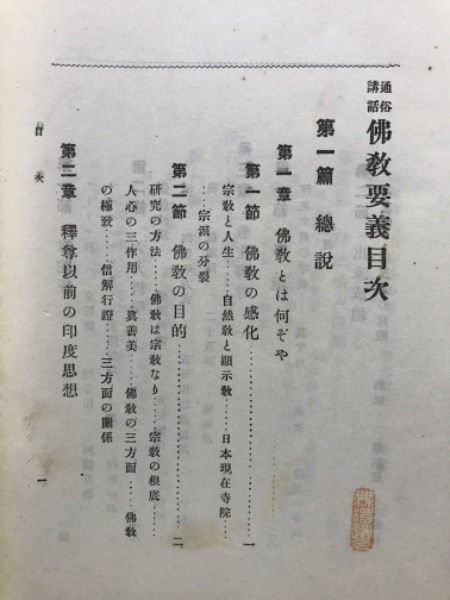 通俗講話 佛教要義目次
第一篇 總說
第一章 佛教とは何ぞや
第一節 佛教の感化……………………一
宗教と人生……自然教と顯示教……日本現在寺院……
……宗派の分裂
第二節 佛教の目的……………………二
研究の方法……佛教は宗教なり……宗教の根底……
人心の三作用……眞善美……佛教の三方面……佛教
の極致……信解行證……三方面の關係
第二章 釋尊以前の印度思想
目次
一